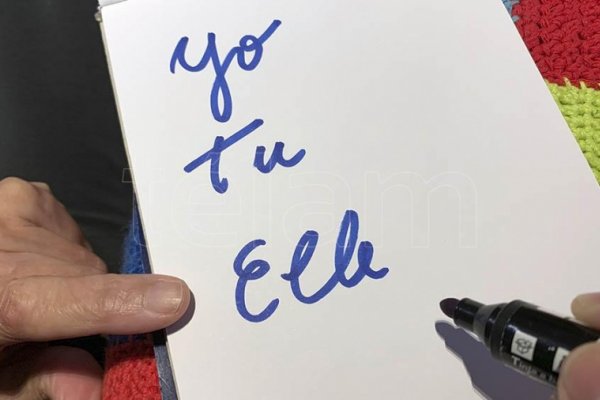 yo
Tu
Elle
telam